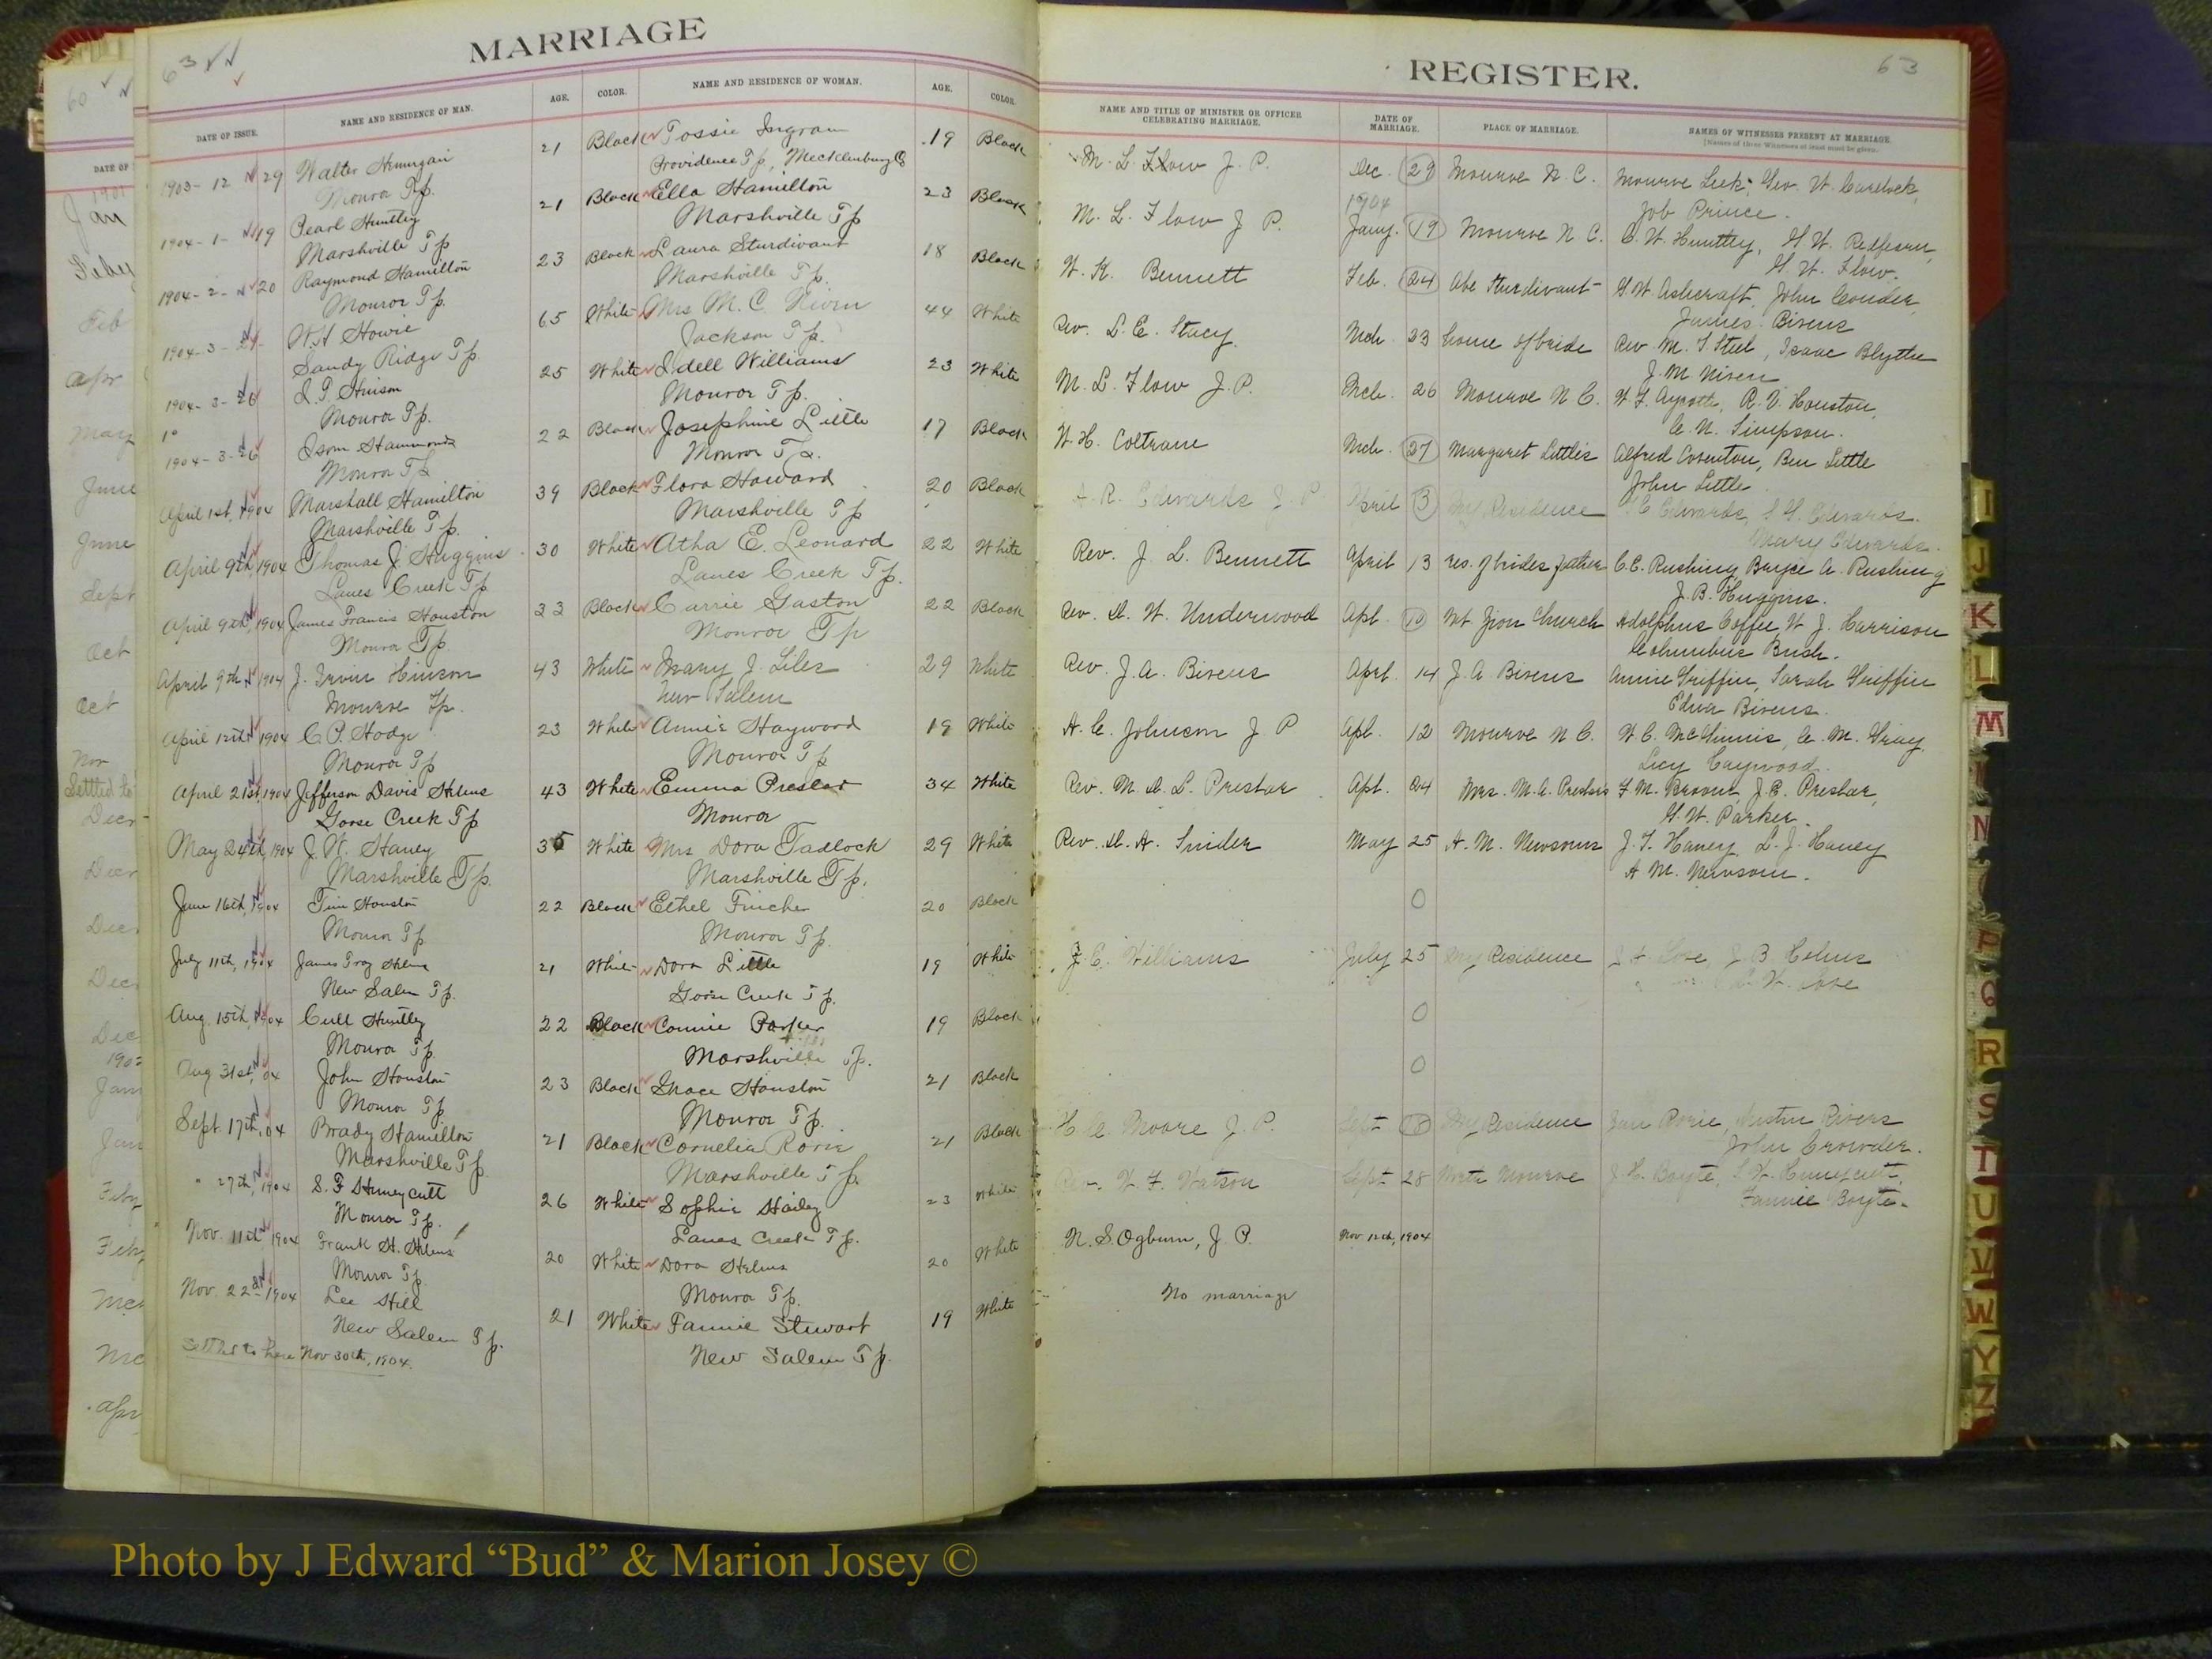 MARRIAGE
63
DATE OF ISSUE.
NAME AND RESIDENCE OF MAN.
AGE.
COLOR.
NAME AND RESIDENCE OF WOMAN.
AGE.
COLOR.
1903-12 29 Walter 21 Black Tossie Ingram 19 Black
Monroe Tp. Providence Tp, Mecklenburg Co
1904-1-19 Pearl Huntley 21 Black Ella Hamilton 23 Black
Marshville Tp Marshville Tp
1904-2-20 Raymond Hamilton 23 Black Laura Sturdivant 18 Black
Monroe Tp. Marshville Tp.
1904-3- W.H Howie 65 White Mrs M. C. Niven 44 White
Sandy Ridge Tp. Jackson Tp.
1904-3-26 Hinson 25 White Idell Williams 23 White
Monroe Tp. Monroe Tp.
1904-3-26 Isom Hammonds 22 Black Josephine Little 17 Black
Monroe Tp Monroe Tp.
April 1st, 1904 Marshall Hamilton 39 Black Flora Howard 20 Black
Marshville Tp. Marshville Tp
April 9th, 1904 Thomas J. Huggins 30 White Atha E. Leonard 22 White
Lanes Creek Tp Lanes Creek Tp.
April 9th, 1904 James Francis Houston 33 Black Carrie Gaston 22 Black
Monroe Tp. Monroe Tp
April 9th 1904 J. Irvin Hinson 43 White Mary J. Liles 29 White
Monroe Tp. New Salem
April 12th 1904 C. P. Hodge 23 White Annie Haywood 19 White
Monroe Tp Monroe Tp
April 21st, 1904 Jefferson Davis Helms 43 White Emma Preslar 34 White
Goose Creek Tp Monroe
May 24th, 1904 J. W. Haney 35 White Mrs Dora Tadlock 29 White
Marshville Tp. Marshville Tp.
June 16th, 1904 Tim Houston 22 Black Ethel Fincher 20 Black
Monroe Tp Monroe Tp.
July 11th, 1904 James Troy Helms 21 White Dora Little 19 White
New Salem Tp. Goose Creek Tp.
Aug. 15th, 1904 Cull Huntley 22 Black Connie Parker 19 Black
Monroe Tp. Marshville Tp.
Aug 31st, 04 John Houston 23 Black Grace Houston 21 Black
Monroe Tp Monroe Tp.
Sept. 17th, 04 Brady Hamilton 21 Black Cornelia Rorie 21 Black
Marshville Tp. Marshville Tp.
" 27th, 1904 S. F Huneycutt 26 White Sophie Hailey 23 White
Monroe Tp. Lanes Creek Tp.
Nov. 11th 1904 Frank H. Helms 20 White Dora Helms 20 White
Monroe Tp. Monroe Tp.
Nov. 22 1904 Lee Hill 21 White Fannie Stewart 19 White
New Salem Tp. New Salem Tp.
Settled to here Nov 30th, 1904.
REGISTER.
63
NAME AND TITLE OF MINISTER OR OFFICER
CELEBRATING MARRIAGE.
DATE OF
MARRIAGE.
PLACE OF MARRIAGE.
NAMES OF WITNESSES PRESENT AT MARRIAGE.
[Names of three Witnesses at least must be given.
M. L. Flow J. P. Dec. 29 Monroe N. C. Monroe Leek, Geo. W.
1904 Job Prince.
M. L. Flow J P. Jany. 19 Monroe N C. C. W. Huntley, G W. Redfearn,
G. W. Flow.
W. K. Bennett Feb. 24 Abe Sturdivant G W. Ashcraft, John Conder,
James Bivens
Rev. L. E. Stacy. Mch 23 home of bride Rev. M. T Steel, Isaac Blythe
J. M Niven
M. L. Flow J. P. Mch. 26 Monroe N C. R. V. Houston,
C. N. Simpson.
W. H. Coltrane Mch. 27 Margaret Littles Alfred Covington, Ben Little
John Little
A. R. Edwards J. P April 3 My Residence Edwards, Edwards.
Mary Edwards.
Rev. J. L. Bennett April 13 res. of brides father C. C. Rushing Bryce A. Rushing
J. B. Huggins.
Rev. D. W. Underwood Apl. 10 Mt Zion Church Adolphus Coffee, W J. Harrison
Columbus Bush.
Rev. J. A. Bivens Aprl. 14 J. A Bivens Annie Griffin, Sarah Griffin
Edna Bivens.
H. C. Johnson J P Apl. 12 Monroe N C. A. M. Gray
Lucy Haywood.
Rev. M. D. L. Preslar Apl. 24 Mrs. M. A. Preslars F. M. Broom, J. R. Preslar,
G. W. Parker.
Rev. D. A. Snider May 25 A. M. Newsoms J. T. Haney, L. J. Haney
A M. Newsom.
0
J. C. Williams July 25 My Residence Love, J B Helms
Love
0
0
H. C. Moore J. P. Sept 18 My Residence Rorie, Rivers
John Crowder.
Rev. W. F. Watson Sept 28 North Monroe J. H. Boyte, Huneycutt,
Fannie Boyte.
N. S. Ogburn, J. P. Nov 12th, 1904
No marriage
I
J
K
L
M
N
P
Q
R
S
T
U
V
W
Y
Z
60
DATE OF
1901
Jan
Feby
Feb
Apr
May
June
June
Sept
Oct
Oct
Nov
Settled to
Decr
Photo by J Edward “Bud” & Marion Josey ©